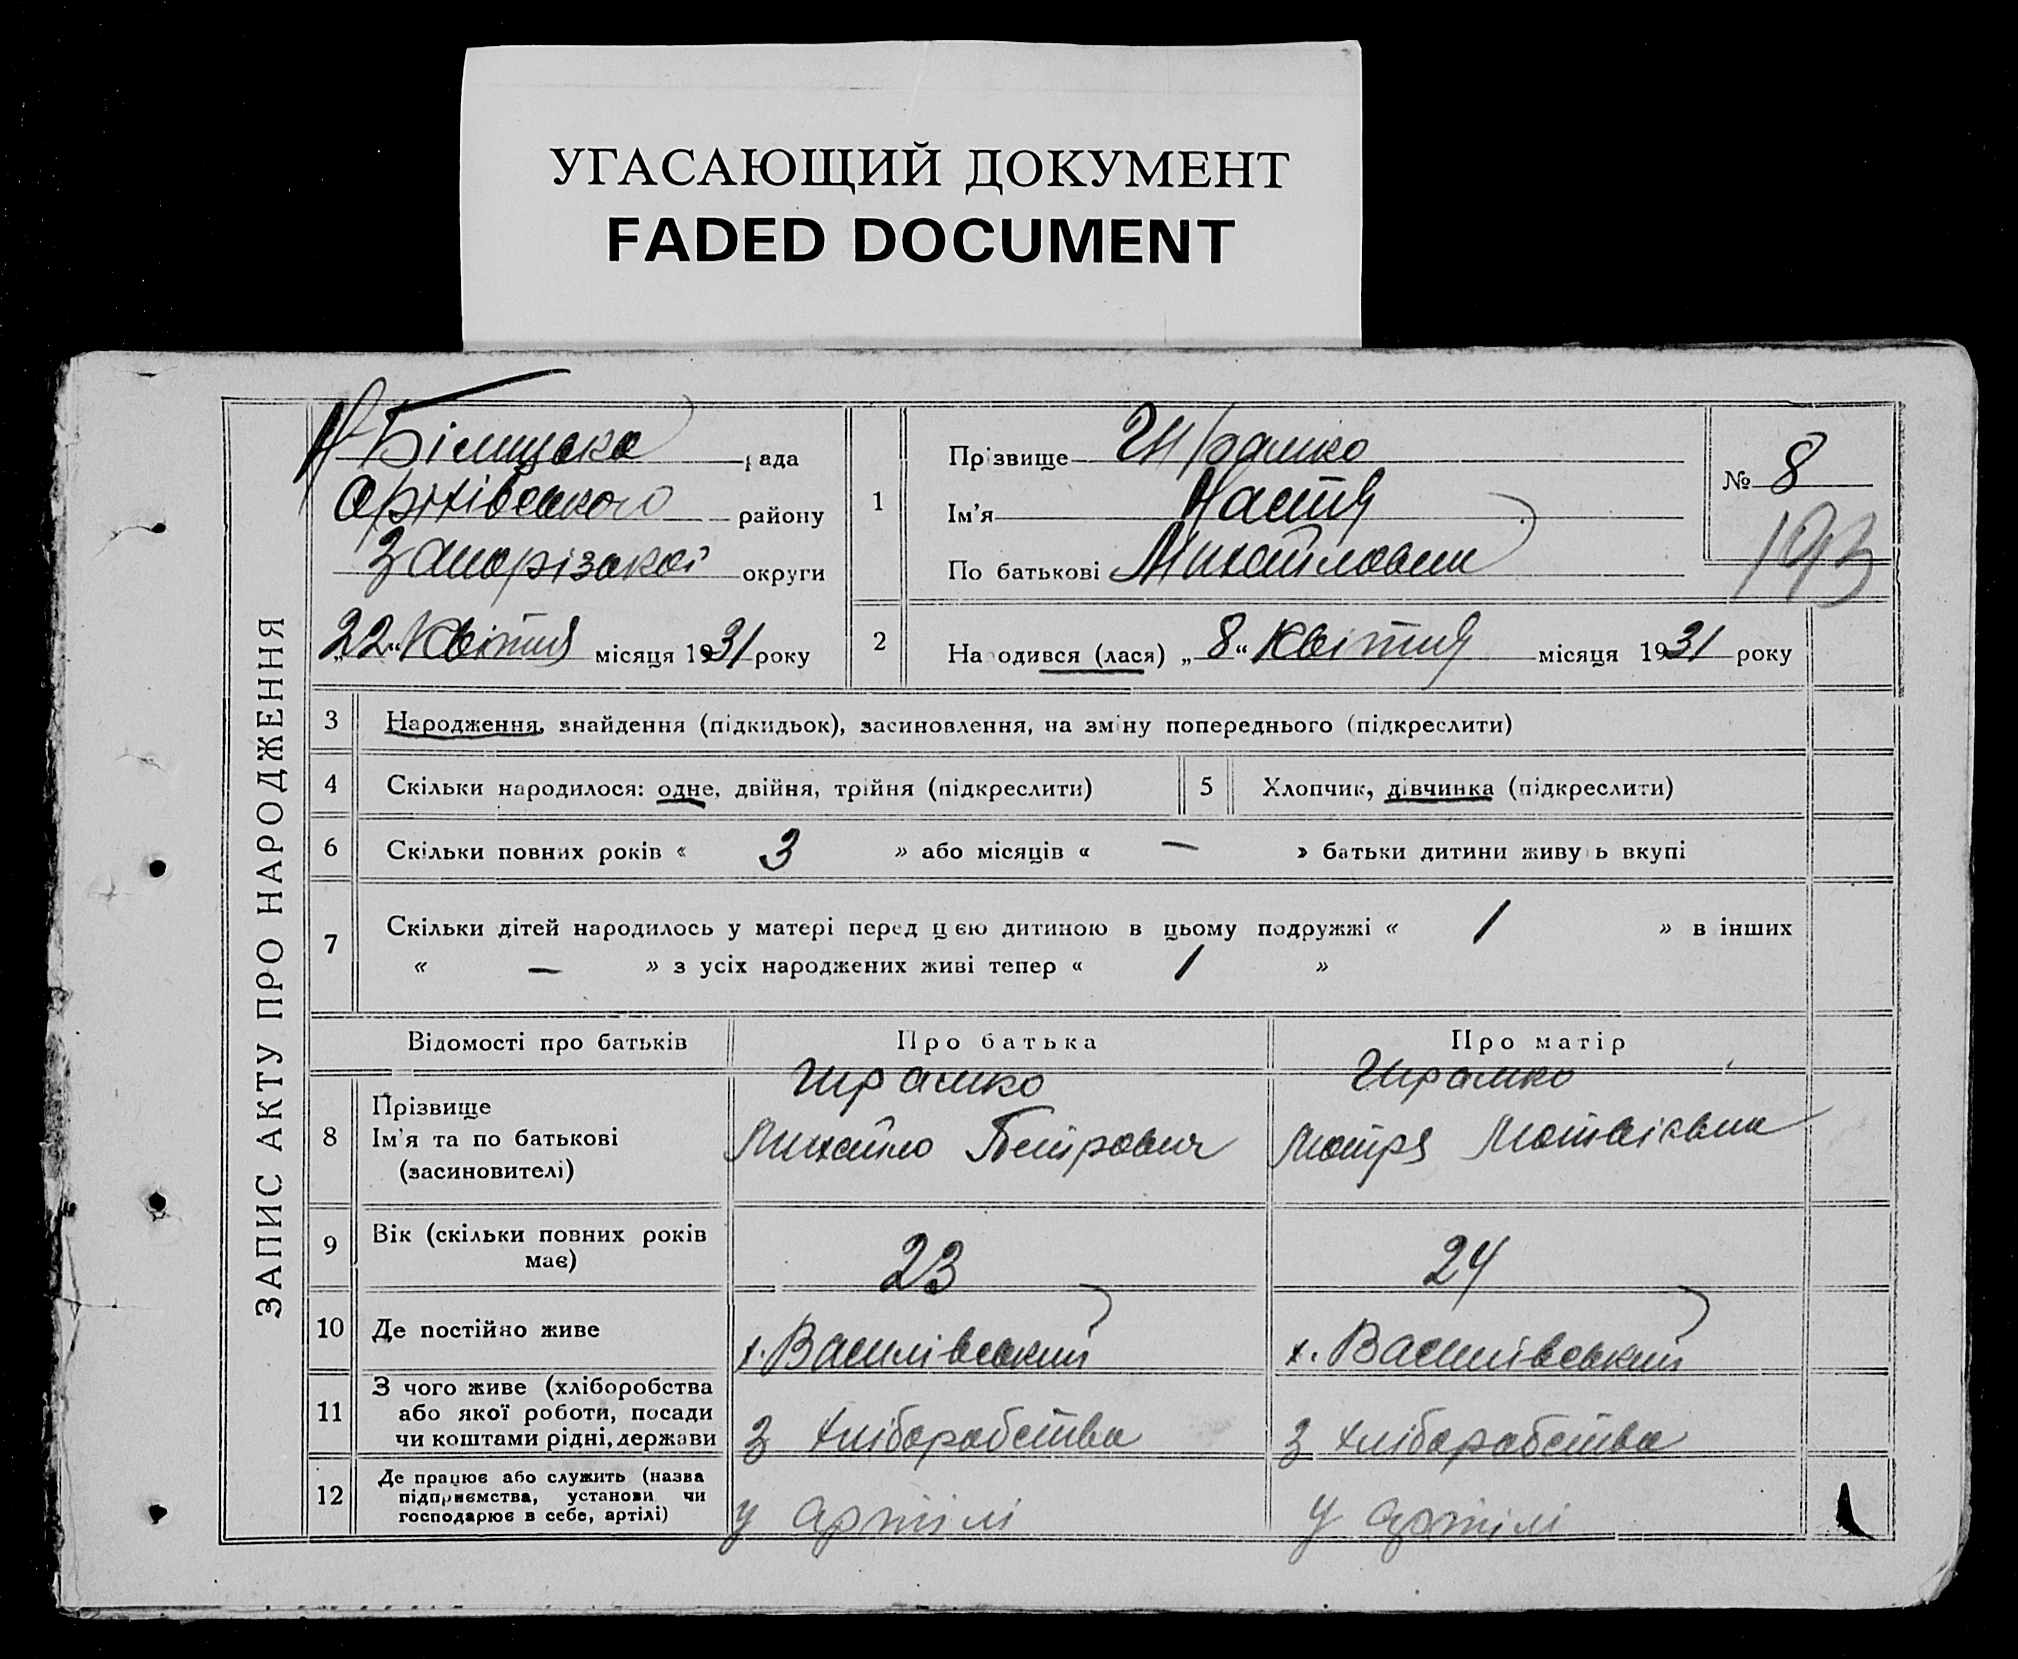 УГАСАЮЩИЙ ДОКУМЕНТ
FADED DOCUMENT
ЗАПИС АКТУ ПРО НАРОДЖЕННЯ
рада
Оріхівського району
Запорізької округи
„22“ Квітня місяця 1931 року
1
Прізвище
Ім'я Настя
По батькові Михайловна
№ 8
193
2
Народився (лася) „8“ Квітня місяця 1931 року
3 Народження, знайдення (підкидьок), засиновлення, на зміну попереднього (підкреслити)
4 Скільки народилося: одне, двійня, трійня (підкреслити)
5 Хлопчик, дівчинка (підкреслити)
6 Скільки повних років « 3 » або місяців « — » батьки дитини живуть вкупі
7 Скільки дітей народилось у матері перед цією дитиною в цьому подружжі « 1 » в інших
« — » з усіх народжених живі тепер « 1 »
Відомості про батьків
Про батька
Про матір
8 Прізвище
Ім'я та по батькові
(засиновителі)
Михайло Петрович
Мотря Мотвієвна
9 Вік (скільки повних років
має)
23
24
10 Де постійно живе
х. Василівський
х. Василівський
11 З чого живе (хліборобства
або якої роботи, посади
чи коштами рідні, держави
З хліборобства
З хліборобства
12 Де працює або служить (назва
підприємства, установи чи
господарює в себе, артілі)
у артілі
у артілі